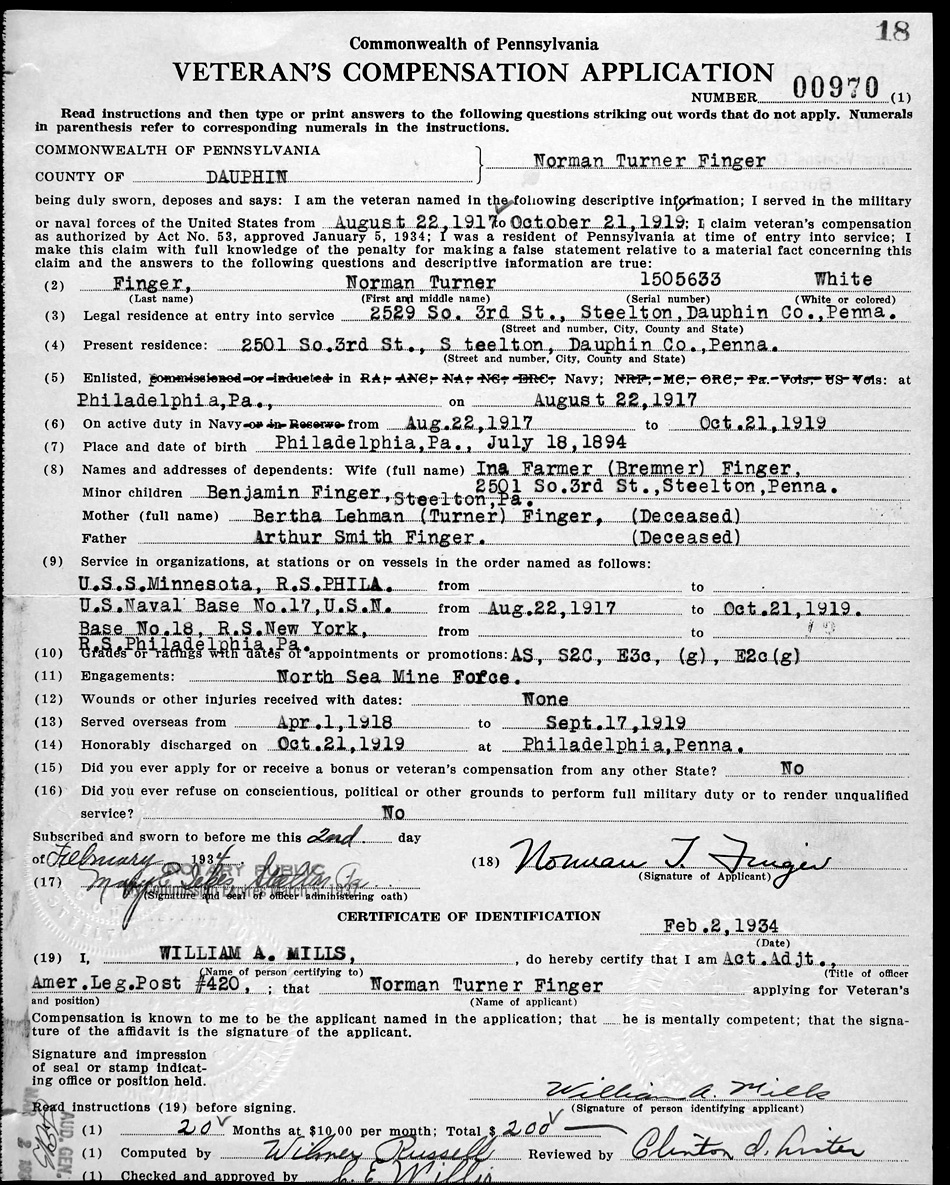 18
Commonwealth of Pennsylvania
VETERAN'S COMPENSATION APPLICATION
NUMBER 00970 (1)
Read instructions and then type or print answers to the following questions striking out words that do not apply. Numerals
in parenthesis refer to corresponding numerals in the instructions.
COMMONWEALTH OF PENNSYLVANIA
Norman Turner Finger
COUNTY OF DAUPHIN
being duly sworn, deposes and says: I am the veteran named in the following descriptive information; I served in the military
or naval forces of the United States from August 22,1917 to October 21,1919; I claim veteran's compensation
as authorized by Act No. 53, approved January 5, 1934; I was a resident of Pennsylvania at time of entry into service; I
make this claim with full knowledge of the penalty for making a false statement relative to a material fact concerning this
claim and the answers to the following questions and descriptive information are true:
(2) Finger, Norman Turner 1505633 White
(Last name) (First and middle name) (Serial number) (White or colored)
(3) Legal residence at entry into service 2529 So. 3rd St., Steelton,Dauphin Co.,Penna.
(Street and number, City, County and State)
(4) Present residence: 2501 So.3rd St., S teelton, Dauphin Co.,Penna.
(Street and number, City, County and State)
(5) Enlisted, commissioned or inducted in RA; ANC; NA; NG; ERC; Navy; NRF; MC; ORC; Pa. Vols; US Vols: at
Philadelphia,Pa., on August 22,1917
(6) On active duty in Navy or in Reserve from Aug.22,1917 to Oct.21,1919
(7) Place and date of birth Philadelphia,Pa., July 18,1894
(8) Names and addresses of dependents: Wife (full name) Ina Farmer (Bremner) Finger,
2501 So.3rd St.,Steelton,Penna.
Minor children Benjamin Finger,Steelton,Pa.
Mother (full name) Bertha Lehman (Turner) Finger, (Deceased)
Father Arthur Smith Finger. (Deceased)
(9) Service in organizations, at stations or on vessels in the order named as follows:
U.S.S.Minnesota, R.S.PHILA. from to
U.S.Naval Base No.17,U.S.N. from Aug.22,1917 to Oct.21,1919.
Base No.18, R.S.New York, from to
R.S.Philadelphia,Pa.
(10) Grades or ratings with dates of appointments or promotions: AS, S2C, E3c, (g), E2c(g)
(11) Engagements: North Sea Mine Force.
(12) Wounds or other injuries received with dates: None
(13) Served overseas from Apr.1,1918 to Sept.17,1919
(14) Honorably discharged on Oct.21,1919 at Philadelphia,Penna.
(15) Did you ever apply for or receive a bonus or veteran's compensation from any other State? No
(16) Did you ever refuse on conscientious, political or other grounds to perform full military duty or to render unqualified
service? No
Subscribed and sworn to before me this 2nd day
of February 1934
(18) Norman T. Finger
(Signature of Applicant)
(17)
NOTARY PUBLIC
(Signature and seal of officer administering oath)
CERTIFICATE OF IDENTIFICATION
Feb.2,1934
(Date)
(19) I, WILLIAM A. MILLS, , do hereby certify that I am Act.Adjt.,
(Name of person certifying to) (Title of officer
Amer.Leg.Post #420, ; that Norman Turner Finger applying for Veteran's
and position) (Name of applicant)
Compensation is known to me to be the applicant named in the application; that he is mentally competent; that the signa-
ture of the affidavit is the signature of the applicant.
Signature and impression
of seal or stamp indicat-
ing office or position held.
William A. Mills
Read instructions (19) before signing.
(Signature of person identifying applicant)
(1) 20 Months at $10.00 per month; Total $ 200
(1) Computed by Wilmer Russell Reviewed by Clinton
(1) Checked and approved by Willis
AUD. GEN.